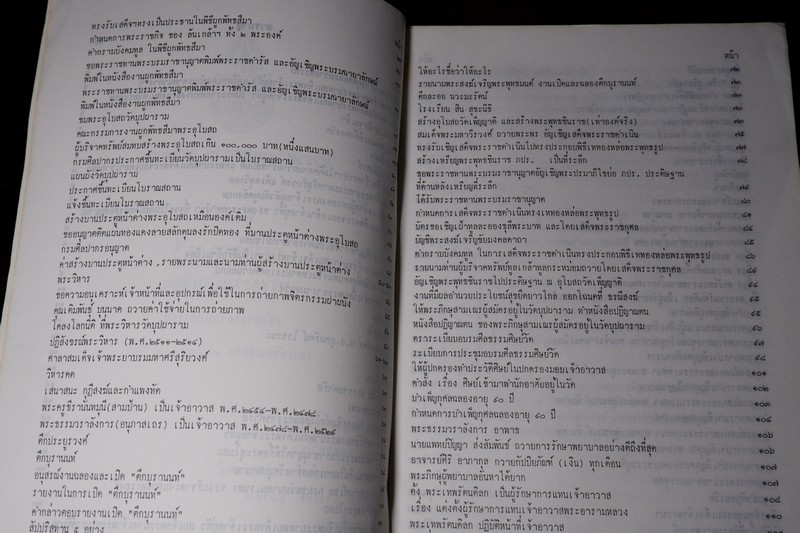 ทรงรับเสด็จฯทรงเป็นประธานในพิธีผูกพัทธสีมา
กำหนดการพระราชกิจ ของ ล้นเกล้าฯ ทั้ง ๒ พระองค์
คำกราบบังคมทูล ในพิธีผูกพัทธสีมา
ขอพระราชทานพระบรมราชานุญาตพิมพ์พระราชดำรัส และอัญเชิญพระบรมฉายาลักษณ์
พิมพ์ในหนังสืองานผูกพัทธสีมา
พระราชทานพระบรมราชานุญาตพิมพ์พระราชดำรัส และอัญเชิญพระบรมฉายาลักษณ์
พิมพ์ในหนังสืองานผูกพัทธสีมา
ชมพระอุโบสถวัดบุปผาราม
คณะกรรมการงานผูกพัทธสีมาพระอุโบสถ
ผู้บริจาคทรัพย์สมทบสร้างพระอุโบสถเกิน ๑๐๐,๐๐๐ บาท(หนึ่งแสนบาท)
กรมศิลปากรประกาศขึ้นทะเบียนวัดบุปผารามเป็นโบราณสถาน
แผนผังวัดบุปผาราม
ประกาศขึ้นทะเบียนโบราณสถาน
แจ้งขึ้นทะเบียนโบราณสถาน
สร้างบานประตูหน้าต่างพระอุโบสถเหมือนองค์เดิม
ขออนุญาตติดแผ่นทองแดงลายสลักดุนลงรักปิดทอง ที่บานประตูหน้าต่างพระอุโบสถ
กรมศิลปากรอนุญาต
ค่าสร้างบานประตูหน้าต่าง ,รายพระนามและนามท่านผู้สร้างบานประตูหน้าต่าง
พระวิหาร
ขอความอนุเคราะห์เจ้าหน้าที่และอุปกรณ์เพื่อใช้ในการถ่ายภาพจิตรกรรมฝาผนัง
คุณเติมพันธุ์ บุนนาค ถวายค่าใช้จ่ายในการถ่ายภาพ
โคลงโลกนิติ ที่พระวิหารวัดบุปผาราม
ปฏิสังขรณ์พระวิหาร (พ.ศ.๒๕๑๑-๒๕๑๔)
ศาลาสมเด็จเจ้าพระยาบรมมหาศรีสุริยวงศ์
วิหารคด
เสนาสนะ กุฏีสงฆ์และกำแพงวัด
พระครูธีรานันทมุนี(สามบ้าน) เป็นเจ้าอาวาส พ.ศ.๒๔๕๔-พ.ศ.๒๔๗๘
พระธรรมวราลังการ(อนุภาสเถร) เป็นเจ้าอาวาส พ.ศ.๒๔๗๘-พ.ศ.๒๕๒๙
ตึกประยูรวงศ์
ตึกบุรานนท์
อนุสรณ์งานฉลองและเปิด "ตึกบุรานนท์"
รายงานในการเปิด "ตึกบุรานนท์"
คำกล่าวตอบรายงานเปิด "ตึกบุรานนท์"
สัปปุริสทาน ๕ อย่าง
หน้า
ให้อะไรชื่อว่าให้อะไร
รายนามพระสงฆ์เจริญพระพุทธมนต์ งานเปิดและฉลองตึกบุรานนท์
ตึกละออ นวะมะรัตน์
โรงเรียน สิน สุขะนิธิ
สร้างอุโบสถวัดเพ็ญชาติ และสร้างพระพุทธชินราช(เท่าองค์จริง)
สมเด็จพระมหาวีรวงศ์ ถวายพระพร อัญเชิญเสด็จพระราชดำเนิน
ทรงรับเชิญเสด็จพระราชดำเนินไปทรงประกอบพิธีเททองหล่อพระพุทธรูป
สร้างเหรียญพระพุทธชินราช ภปร. เป็นที่ระลึก
ขอพระราชทานพระบรมราชานุญาตอัญเชิญพระปรมาภิไธยย่อ ภปร. ประดิษฐาน
ที่ด้านหลังเหรียญที่ระลึก
ได้รับพระราชทานพระบรมราชานุญาต
กำหนดการเสด็จพระราชดำเนินทรงเททองหล่อพระพุทธรูป ๘๑
บัตรขอเชิญเฝ้าทูลละอองธุลีพระบาท และโดยเสด็จพระราชกุศล
บัญชีพระสงฆ์เจริญชัยมงคลคาถา ๘๕
คำกราบบังคมทูล ในการเสด็จพระราชดำเนินทรงประกอบพิธีเททองหล่อพระพุทธรูป ๘๖
รายนามท่านผู้บริจาคทรัพย์ทูลเกล้าทูลกระหม่อมถวายโดยเสด็จพระราชกุศล
อัญเชิญพระพุทธชินราชไปประดิษฐาน ณ อุโบสถวัดเพ็ญชาติ
งานที่มีผลอำนวยประโยชน์สุขยืดยาวไกล ออกโฉนดที่ ธรณีสงฆ์
ให้พระภิกษุสามเณรผู้สมัครอยู่ในวัดบุปผาราม ทำหนังสือปฏิญาณตน
หนังสือปฏิญาณตน ของพระภิกษุสามเณรผู้สมัครอยู่ในวัดบุปผาราม
ตราระเบียบอบรมศีลธรรมศิษย์วัด ๙๗
ระเบียบการประชุมอบรมศีลธรรมศิษย์วัด ๙๘
ให้ผู้ปกครองทำประวัติศิษย์ในปกครองมอบเจ้าอาวาส ๑๐๑
คำสั่ง เรื่อง ศิษย์เข้ามาพำนักอาศัยอยู่ในวัด ๑๐๒
บำเพ็ญกุศลฉลองอายุ ๙๐ ปี ๑๐๓
กำหนดการบำเพ็ญกุศลฉลองอายุ ๙๐ ปี ๑๐๔
พระธรรมวราลังการ อาพาธ ๑๐๖
นายแพทย์ปัญญา ส่งสัมพันธ์ ถวายการรักษาพยาบาลอย่างดีถึงที่สุด ๑๐๖
อาจารย์ศิริ อาภากุล ถวายกัปปิยภัณฑ์ (เงิน) ทุกเดือน ๑๐๗
พระภิกษุผู้พยาบาลอันหาได้ยาก ๑๐๗
ตั้ง พระเทพรัตนดิลก เป็นผู้รักษาการแทนเจ้าอาวาส ๑๐๘
เรื่อง แต่งตั้งผู้รักษาการแทนเจ้าอาวาสพระอารามหลวง ๑๑๐
พระเทพรัตนดิลก ปฏิบัติหน้าที่เจ้าอาวาส